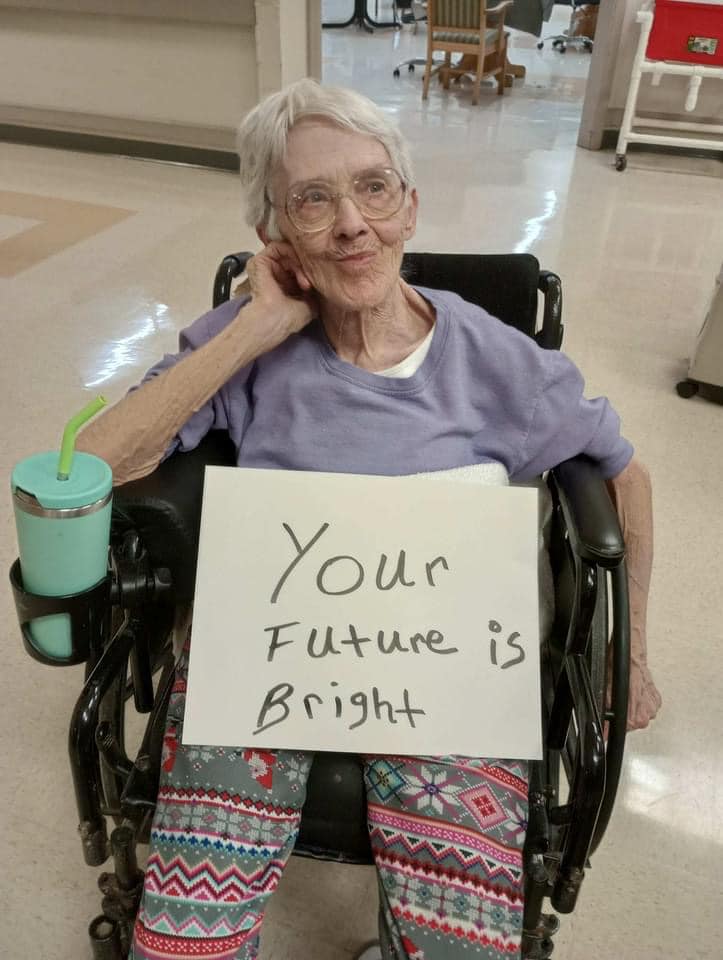 Your
Future is
Bright